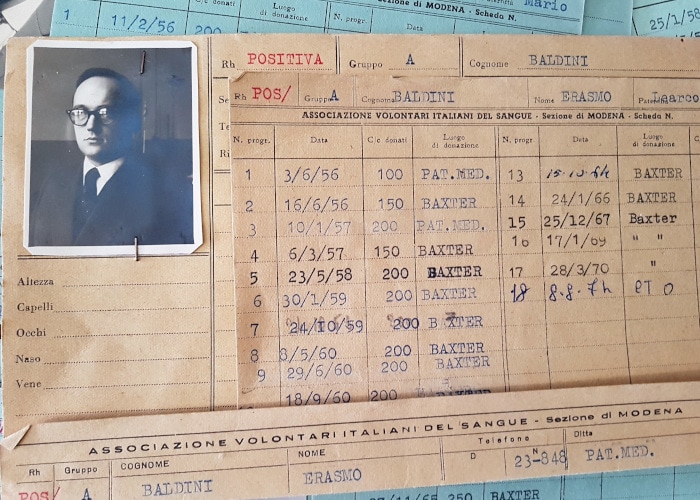 1 11/2/56 200
C/c donati Luogo di donazione N. progr. Data
Sezione di MODENA - Scheda N.
Mario
25/1/58
Rh POSITIVA Gruppo A Cognome BALDINI
Rh POS/ Gruppo A Cognome BALDINI Nome ERASMO Learco
ASSOCIAZIONE VOLONTARI ITALIANI DEL SANGUE - Sezione di MODENA - Scheda N.
N. progr. Data C/c donati Luogo di donazione N. progr. Data Luogo di donazione
1 3/6/56 100 PAT.MED. 13 BAXTER
2 16/6/56 150 BAXTER 14 24/1/66 BAXTER
3 10/1/57 200 PAT.MED. 15 25/12/67 Baxter
4 6/3/57 150 BAXTER 16 17/1/69 " "
5 23/5/58 200 BAXTER 17 28/3/70 "
6 30/1/59 200 BAXTER 18
7 24/10/59 200 BAXTER
8 8/5/60 200 BAXTER
9 29/6/60 200 BAXTER
18/9/60 200
Altezza
Capelli
Occhi
Naso
Vene
ASSOCIAZIONE VOLONTARI ITALIANI DEL SANGUE - Sezione di MODENA
Rh Gruppo COGNOME NOME Telefono Ditta
POS/ A BALDINI ERASMO D 23-848 N PAT.MED.
250 BAXTER